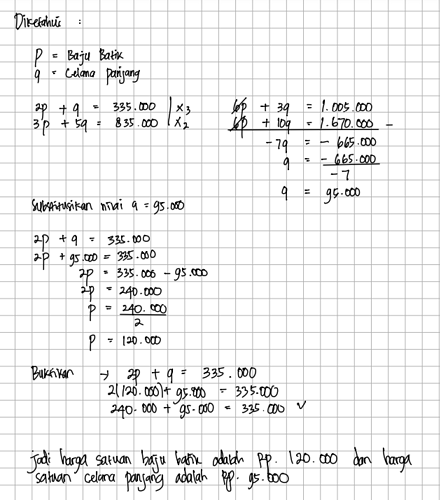 Diketahui :
p = Baju Batik
q = Celana panjang
2p + q = 335.000 | x3
3p + 5q = 835.000 | x2
6p + 3q = 1.005.000
6p + 10q = 1.670.000 -
-7q = - 665.000
q = - 665.000
-7
q = 95.000
Substitusikan nilai q = 95.000
2p + q = 335.000
2p + 95.000 = 335.000
2p = 335.000 - 95.000
2p = 240.000
p = 240.000
2
p = 120.000
Buktikan → 2p + q = 335.000
2(120.000) + 95.000 = 335.000
240.000 + 95.000 = 335.000 ✓
Jadi harga satuan baju batik adalah Rp. 120.000 dan harga
satuan celana panjang adalah Rp. 95.000